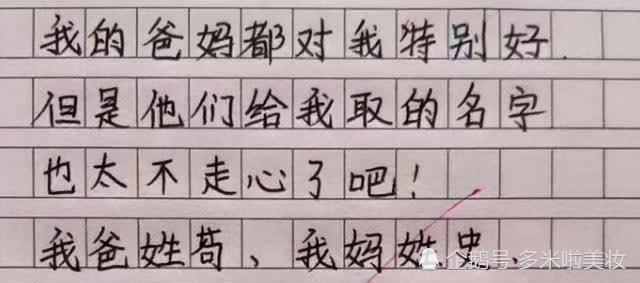 我的爸妈都对我特别好.
但是他们给我取的名字
也太不走心了吧！
我爸姓苟、我妈姓史、
企鹅号 多米啦美妆